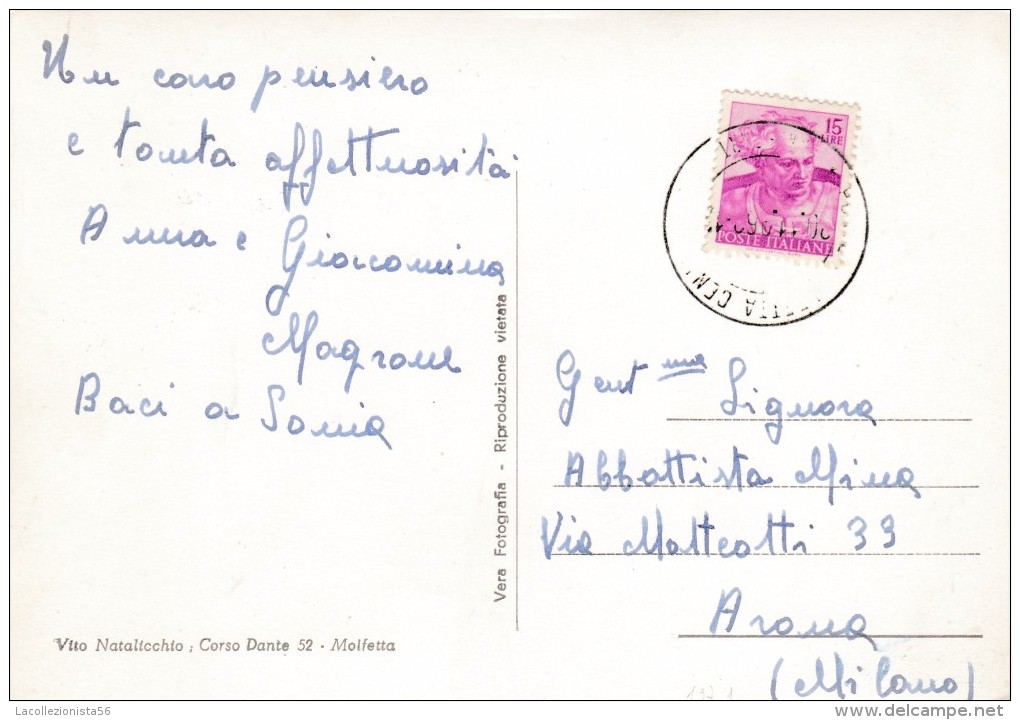 Un caro pensiero
e tanta affettuosità
Anna e Giacomina
Magrone
Baci a Sonia
Vito Natalicchio ; Corso Dante 52 - Molfetta
Vera Fotografia - Riproduzione vietata
15
LIRE
POSTE ITALIANE
Gent ma Signora
Abbattista Mina
Via Matteotti 33
Arona
(Milano)
Lacollezionista56
delcampe.net